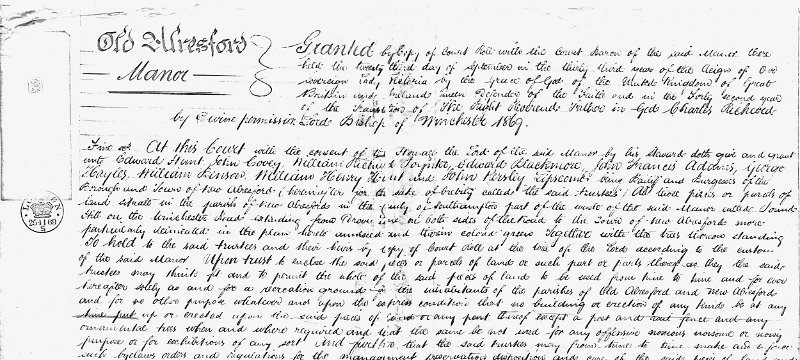 Old Alresford
Manor
Granted by Copy of Court Roll with the Court Baron of the said Manor there
held the twenty third day of September in the thirty third year of the Reign of Our
Sovereign Lady Victoria by the Grace of God of the United Kingdom of Great
Britain and Ireland Queen Defender of the Faith and in the Forty second year
of the Translation of The Right Reverend Father in God Charles Richard
by Divine permission Lord Bishop of Winchester 1869.
At this Court with the consent of the Homage the Lord of the said Manor by his Steward doth give and grant
unto Edward Hunt John Covey, William Richard Edward Blackmore, John Francis Addams, George
William William Henry Hunt and John Bailiff and Burgesses of the
Borough and Town of New Alresford (hereinafter for the sake of brevity called the said trustees) All those pieces or parcels of
land situate in the parish of New Alresford in the County of Southampton part of the waste of the said Manor called
Hill on the Winchester Road extending from on both sides of the road to the Town of New Alresford more
particularly delineated in the plan hereto annexed and therein colored green Together with the trees thereon standing
To hold to the said trustees and their heirs by copy of Court Roll at the Will of the Lord according to the custom
of the said Manor Upon trust to enclose the said pieces or parcels of land or such part or parts thereof as they the said
trustees may think fit and to permit the whole of the said pieces of land to be used from time to time and for ever
hereafter solely as and for a recreation ground for the inhabitants of the parishes of Old Alresford and New Alresford
and for no other purpose whatever and upon the express condition that no building or erection of any kind be at any
time put up or erected upon the said pieces of land or any part thereof except a post and rail fence and any
ornamental trees when and where required and that the same be not used for any offensive noxious noisome or noisy
purpose or for exhibitions of any sort And further that the said trustees may from time to time make and enforce
such byelaws orders and regulations for the management preservation and of the said